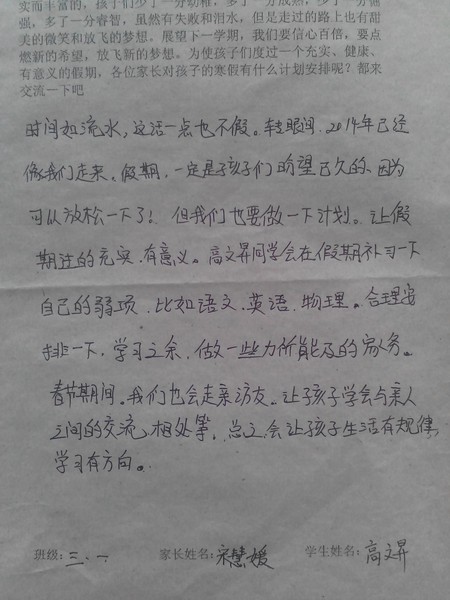 实而丰富的，孩子们少了一分幼稚，多了一分成熟，少了一分倔
强，多了一分睿智，虽然有失败和泪水，但是走过的路上也有甜
美的微笑和放飞的梦想。展望下一学期，我们要信心百倍，要点
燃新的希望，放飞新的梦想。为使孩子们度过一个充实、健康、
有意义的假期，各位家长对孩子的寒假有什么计划安排呢？都来
交流一下吧
时间如流水，这话一点也不假。转眼间，2014年已经
像我们走来。假期，一定是孩子们盼望已久的、因为
可以放松一下了！但我们也要做一下计划。让假
期过的充实、有意义。高文昇同学会在假期补习一下
自己的弱项，比如语文、英语、物理。合理安
排一下，学习之余，做一些力所能及的家务。
春节期间。我们也会走亲访友。让孩子学会与亲人
之间的交流、相处等，总之会让孩子生活有规律，
学习有方向。
班级：三.一 家长姓名：宋慧媛 学生姓名：高文昇